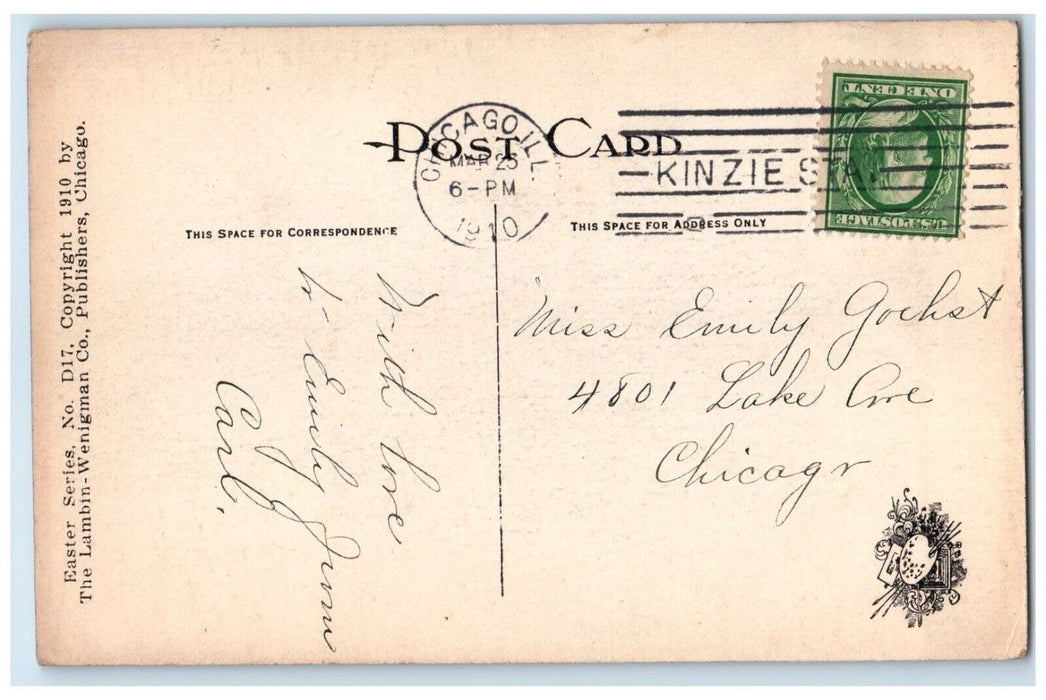 Easter Series, No. D17, Copyright 1910 by
The Lambin-Wenigman Co., Publishers, Chicago.
POST CARD
CHICAGO, ILL.
MAR 25
6-PM
1910
KINZIE STA.
ONE CENT
U.S. POSTAGE
THIS SPACE FOR CORRESPONDENCE
THIS SPACE FOR ADDRESS ONLY
With love
to Emily from
Carl.
Miss Emily Gochst
4801 Lake Ave
Chicago